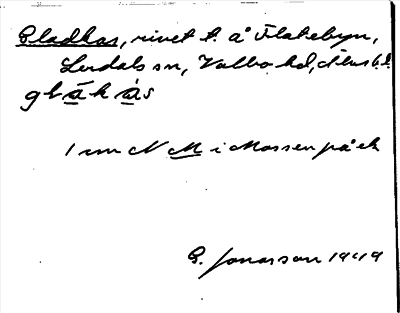 Gladhas, rivet t. å Flatebyn,
Lerdals sn, Valbo hd,
glākås
1 km N M i Mossen på ek
G. Jonasson 1949